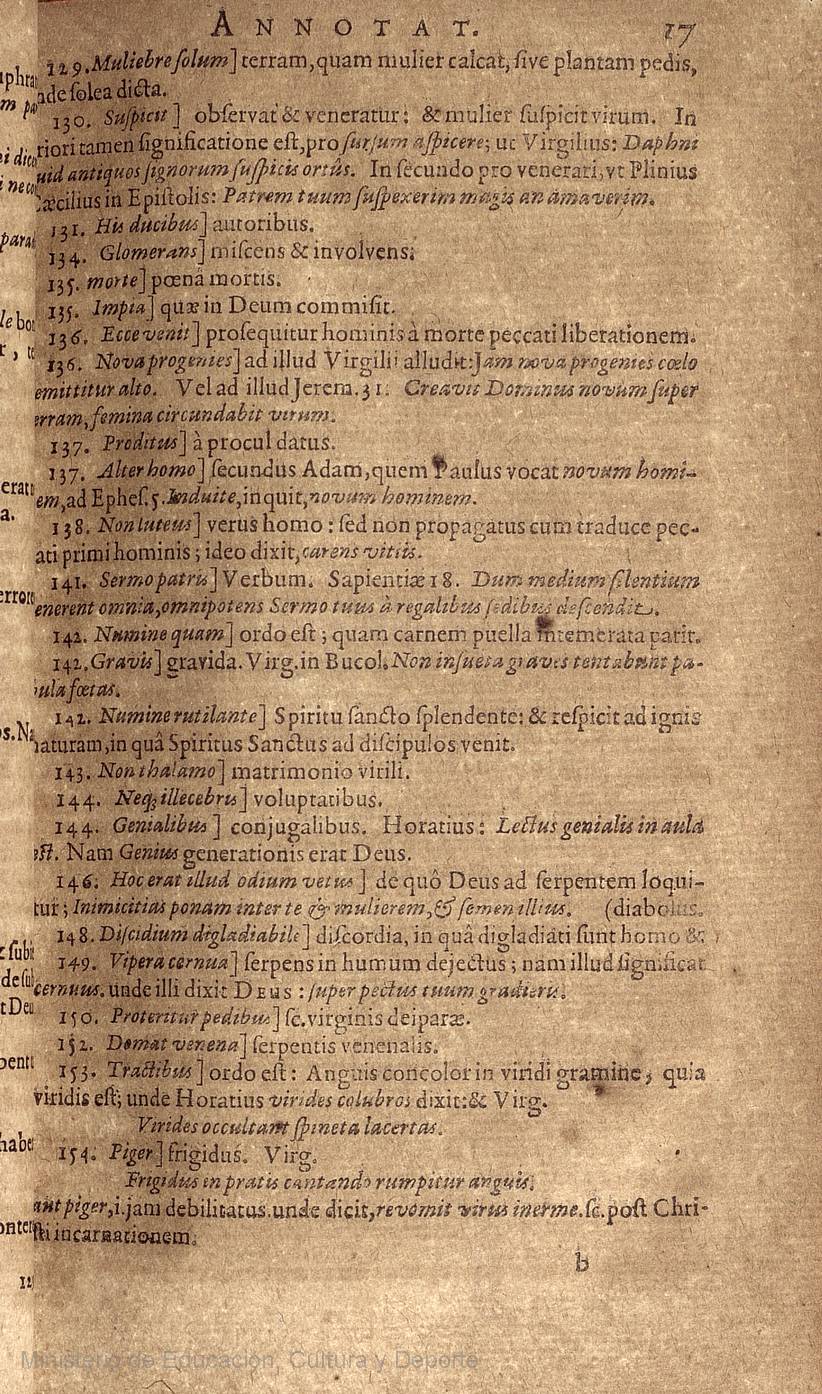 ANNOTAT. 17
129. Muliebre ſolum] terram, quam mulier calcat, ſive plantam pedis,
nde ſolea dicta.
130. Suſpicit] obſervat & veneratur: & mulier ſuſpicit virum. In
riori tamen ſignificatione eſt, pro ſurſum aſpicere; ut Virgilius: Daphni
uid antiquos ſignorum ſuſpicis ortûs. In ſecundo pro venerari, vt Plinius
Cæcilius in Epiſtolis: Patrem tuum ſuſpexerim magis an amaverim.
131. His ducibus] autoribus.
134. Glomerans] miſcens & involvens.
135. morte] pœnâ mortis.
135. Impia] quæ in Deum commiſit.
136. Ecce venit] proſequitur hominis à morte peccati liberationem.
136. Nova progenies] ad illud Virgilii alludit: Jam nova progenies cœlo
emittitur alto. Vel ad illud Jerem. 31. Creavit Dominus novum ſuper
erram, femina circundabit virum.
137. Proditus] à procul datus.
137. Alter homo] ſecundus Adam, quem Paulus vocat novum homi-
em, ad Epheſ. 5. Induite, inquit, novum hominem.
138. Non luteus] verus homo: ſed non propagatus cum traduce pec-
ati primi hominis; ideo dixit, carens vitiis.
141. Sermo patris] Verbum. Sapientiæ 18. Dum medium ſilentium
enerent omnia, omnipotens Sermo tuus à regalibus ſedibus deſcendit.
142. Numine quam] ordo eſt; quam carnem puella intemerata parit.
142. Gravis] gravida. Virg. in Bucol. Non inſueta graves tentabunt pa-
ula fœtas.
142. Numine rutilante] Spiritu ſancto ſplendente: & reſpicit ad ignis
naturam, in quâ Spiritus Sanctus ad diſcipulos venit.
143. Non thalamo] matrimonio virili.
144. Neq; illecebris] voluptatibus.
144. Genialibus] conjugalibus. Horatius: Lectus genialis in aulâ
eſt. Nam Genius generationis erat Deus.
146. Hoc erat illud odium vetus] de quô Deus ad ſerpentem loqui-
tur; Inimicitias ponam inter te & mulierem, & ſemen illius. (diabolus.
148. Diſcidium digladiabile] diſcordia, in quâ digladiati ſunt homo &
149. Vipera cernua] ſerpens in humum dejectus; nam illud ſignificat
cernuus. unde illi dixit DEUS: ſuper pectus tuum gradieris.
150. Proteritur pedibus] ſc. virginis deiparæ.
152. Domat venena] ſerpentis venenalis.
153. Tractibus] ordo eſt: Anguis concolor in viridi gramine, quia
viridis eſt; unde Horatius virides colubros dixit: & Virg.
Virides occultant ſpineta lacertas.
154. Piger] frigidus. Virg.
Frigidus in pratis cantando rumpitur anguis.
aut piger, i. jam debilitatus. unde dicit, revomit virus inerme. ſc. poſt Chri-
ſti incarnationem.
b
Ministerio de Educación, Cultura y Deporte